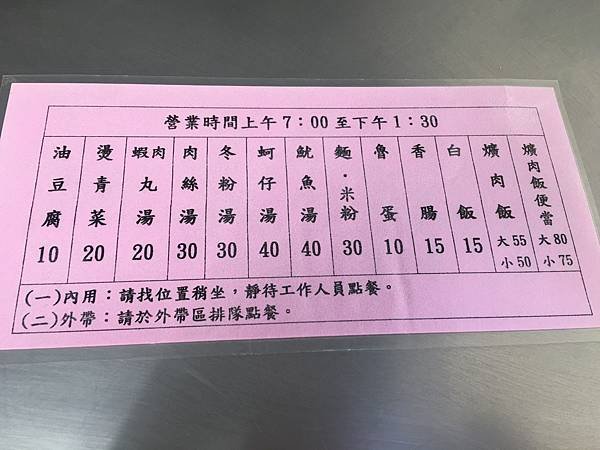 營業時間上午7：00至下午1：30
爌肉飯便當 大80 小75
爌肉飯 大55 小50
白飯 15
香腸 15
魯蛋 10
麵·米粉 30
魷魚湯 40
蚵仔湯 40
冬粉湯 30
肉絲湯 30
蝦肉丸湯 20
燙青菜 20
油豆腐 10
(一)內用：請找位置稍坐，靜待工作人員點餐。
(二)外帶：請於外帶區排隊點餐。